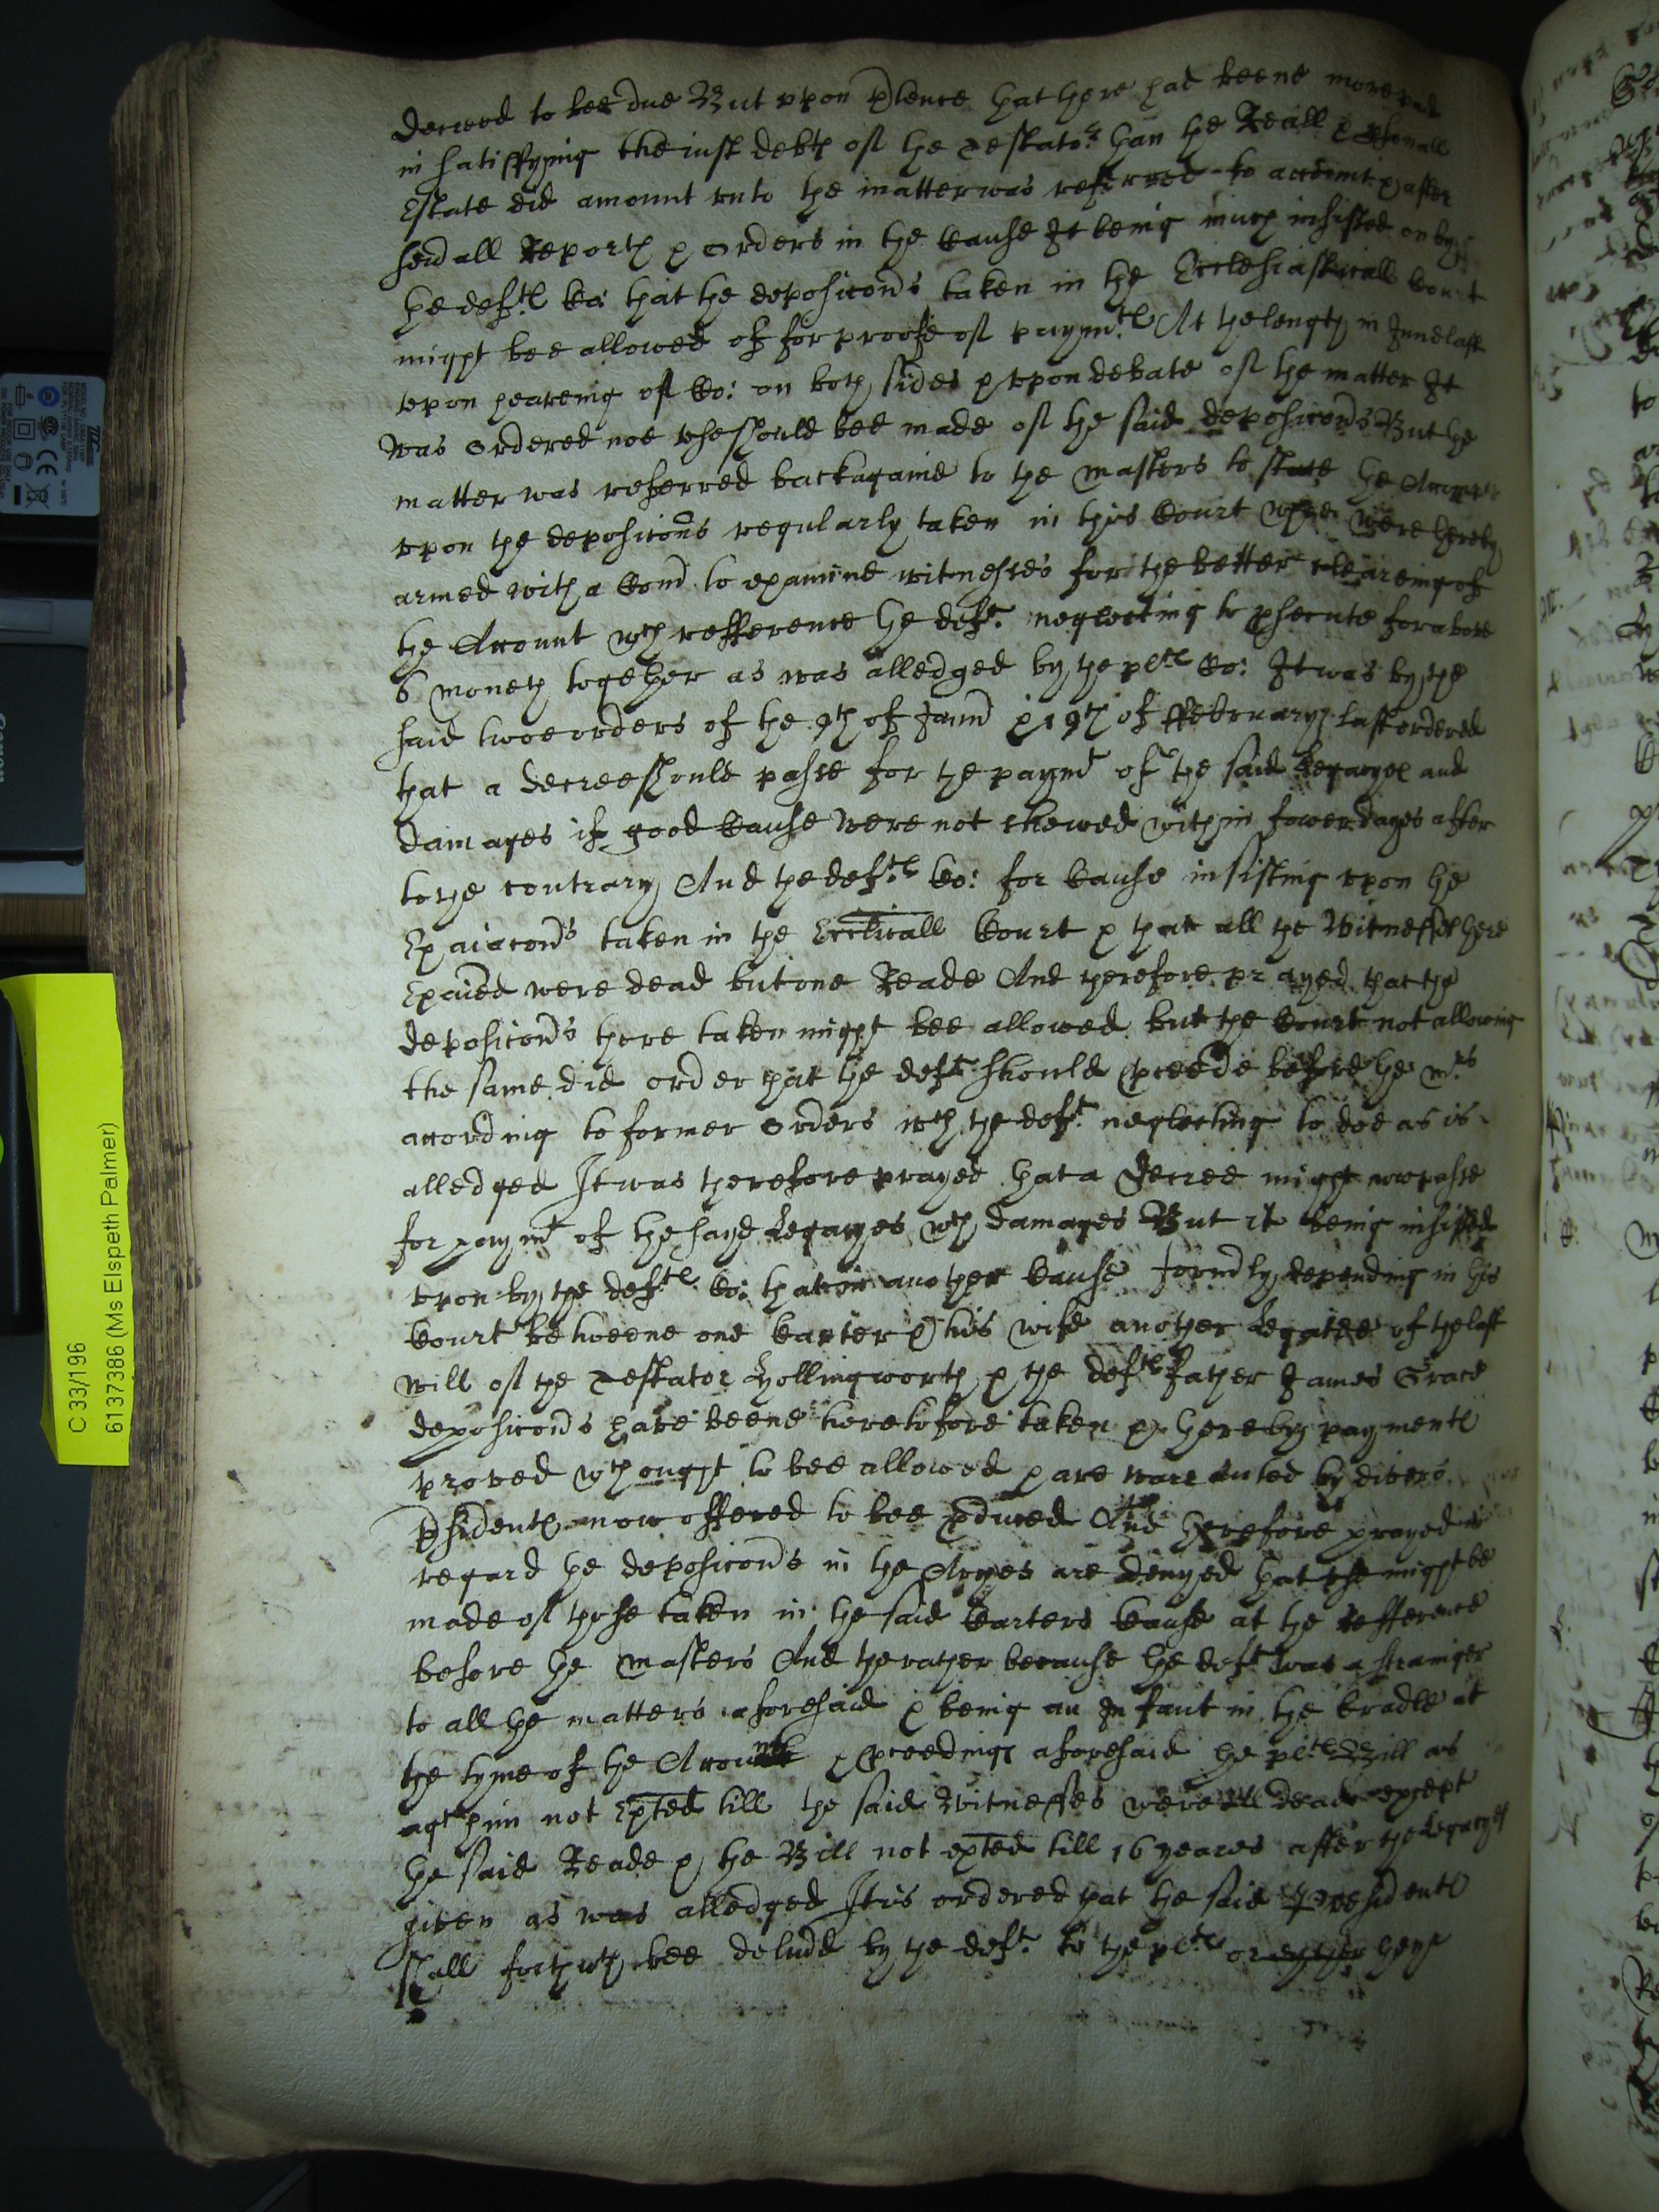 decreed to bee due But vpon p̱tence that there had beene more paid
in satisfying the iust debts of the Testator than the Reall & p̱sonall
Estate did amount vnto the matter was referred to accompt & after
seu̅all Reports & Orders in the Cause It being much insisted on by
the def.ts Co: that the deposicons taken in the Ecclesiasticall Court
might bee allowed of for proofe of paym.ts At the length in June last
vpon heareing of Co: on both sides & vpon debate of the matter It
was Ordered noe vse should bee made of the said deposicons But the
matter was referred back againe to the Masters to state the Accompt
vpon the deposicons regularly taken in this Court who were thereby
armed with a Com̅ to examine witnesses for the better cleareing of
the Account wch refference the deft. neglecting to p̱secute for aboue
6 moneths together as was alledged by the plts Co: It was by the
said twoe orders of the 9th of Janu̅ & 19th of ffebruary last ordered
that a decree should passe for the paymt of the said Legacyes and
damages if good Cause were not shewed within fower dayes after
to the contrary And the def.ts Co: for Cause insisting vpon the
Exaiacons taken in the Ecclicall Court & that all the Witnesses there
Exaied were dead but one Reade And therefore prayed that the
deposicons there taken might bee allowed but the Court not allowing
the same did order that the deft should p̱ceede before the Mrs
according to former Orders wch the deft. neglecting to doe as is
alledged It was therefore prayed that a Decree might now passe
for paymt of the sayd Legacyes wth damages But it being insisted
vpon by the defts Co: that in another Cause form̅ly depending in this
Court betweene one Carter & his wife another Legatee of the last
will of the Testator Hollingworth & the defts father James Grace
deposicons haue beene heretofore taken & thereby payments
proved wch ought to bee allowed & are warranted by divers
P̱sidents now offered to bee p̱duced And therefore prayed in
regard the deposicons in the Arches are denyed that vse might be
made of those taken in the said Carters Cause at the refference
before the Masters And the rather because the deft was a stranger
to all the matters aforesaid & being an Infant in the Cradle at
the tyme of the Accounts & p̱ceedings aforesaid the plts Bill as
agt him not Exħted till the said Witnesses were all dead except
the said Reade & the Bill not exħted till 16 yeares after the Legacyes
given as was alledged It is ordered that the said Presidents
shall forthwth bee deliu̅d by the deft. to the plts or theyr